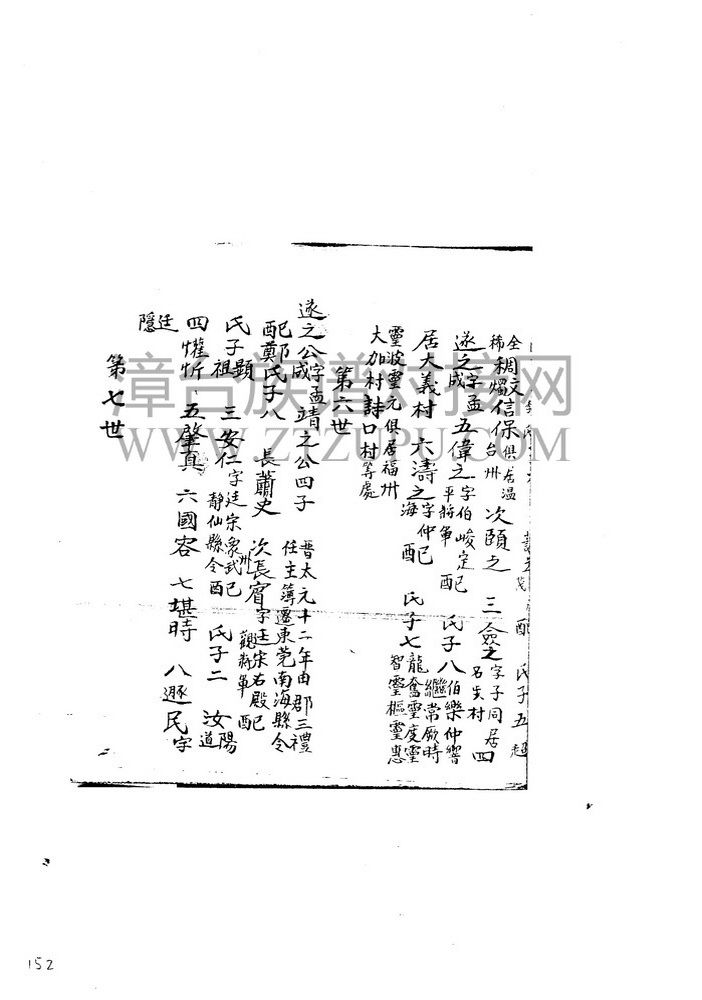 配 氏子五超
全稠文信保俱居温 次頤之 三僉之字子同居 四
稀燭 台州 名尖村
遂之字孟 五偉之字伯峻定 配 氏子八伯樂仲響
成 平將軍 繼常厥時
居大義村 六濤之字仲 配 氏子七龍奮靈度靈
海 智靈樞靈惠
靈波靈元俱居福州
大加村詩口村等處
第六世
遂之公字孟靖之公四子 晋太元十二年由郡三禮
成 任主簿遷東莞南海縣令
配鄭氏子八 長蕭史 次長賓字 宋右殿
觀將軍 配
氏子顯祖 三安仁字廷宋 武 氏子二 汝陽
靜仙縣令 道
四懽忻 五肇真 六國容 七堪時 八遯民字
廷隱
第七世
漳台族谱对接网
WWW.ZTZUPU.COM
152